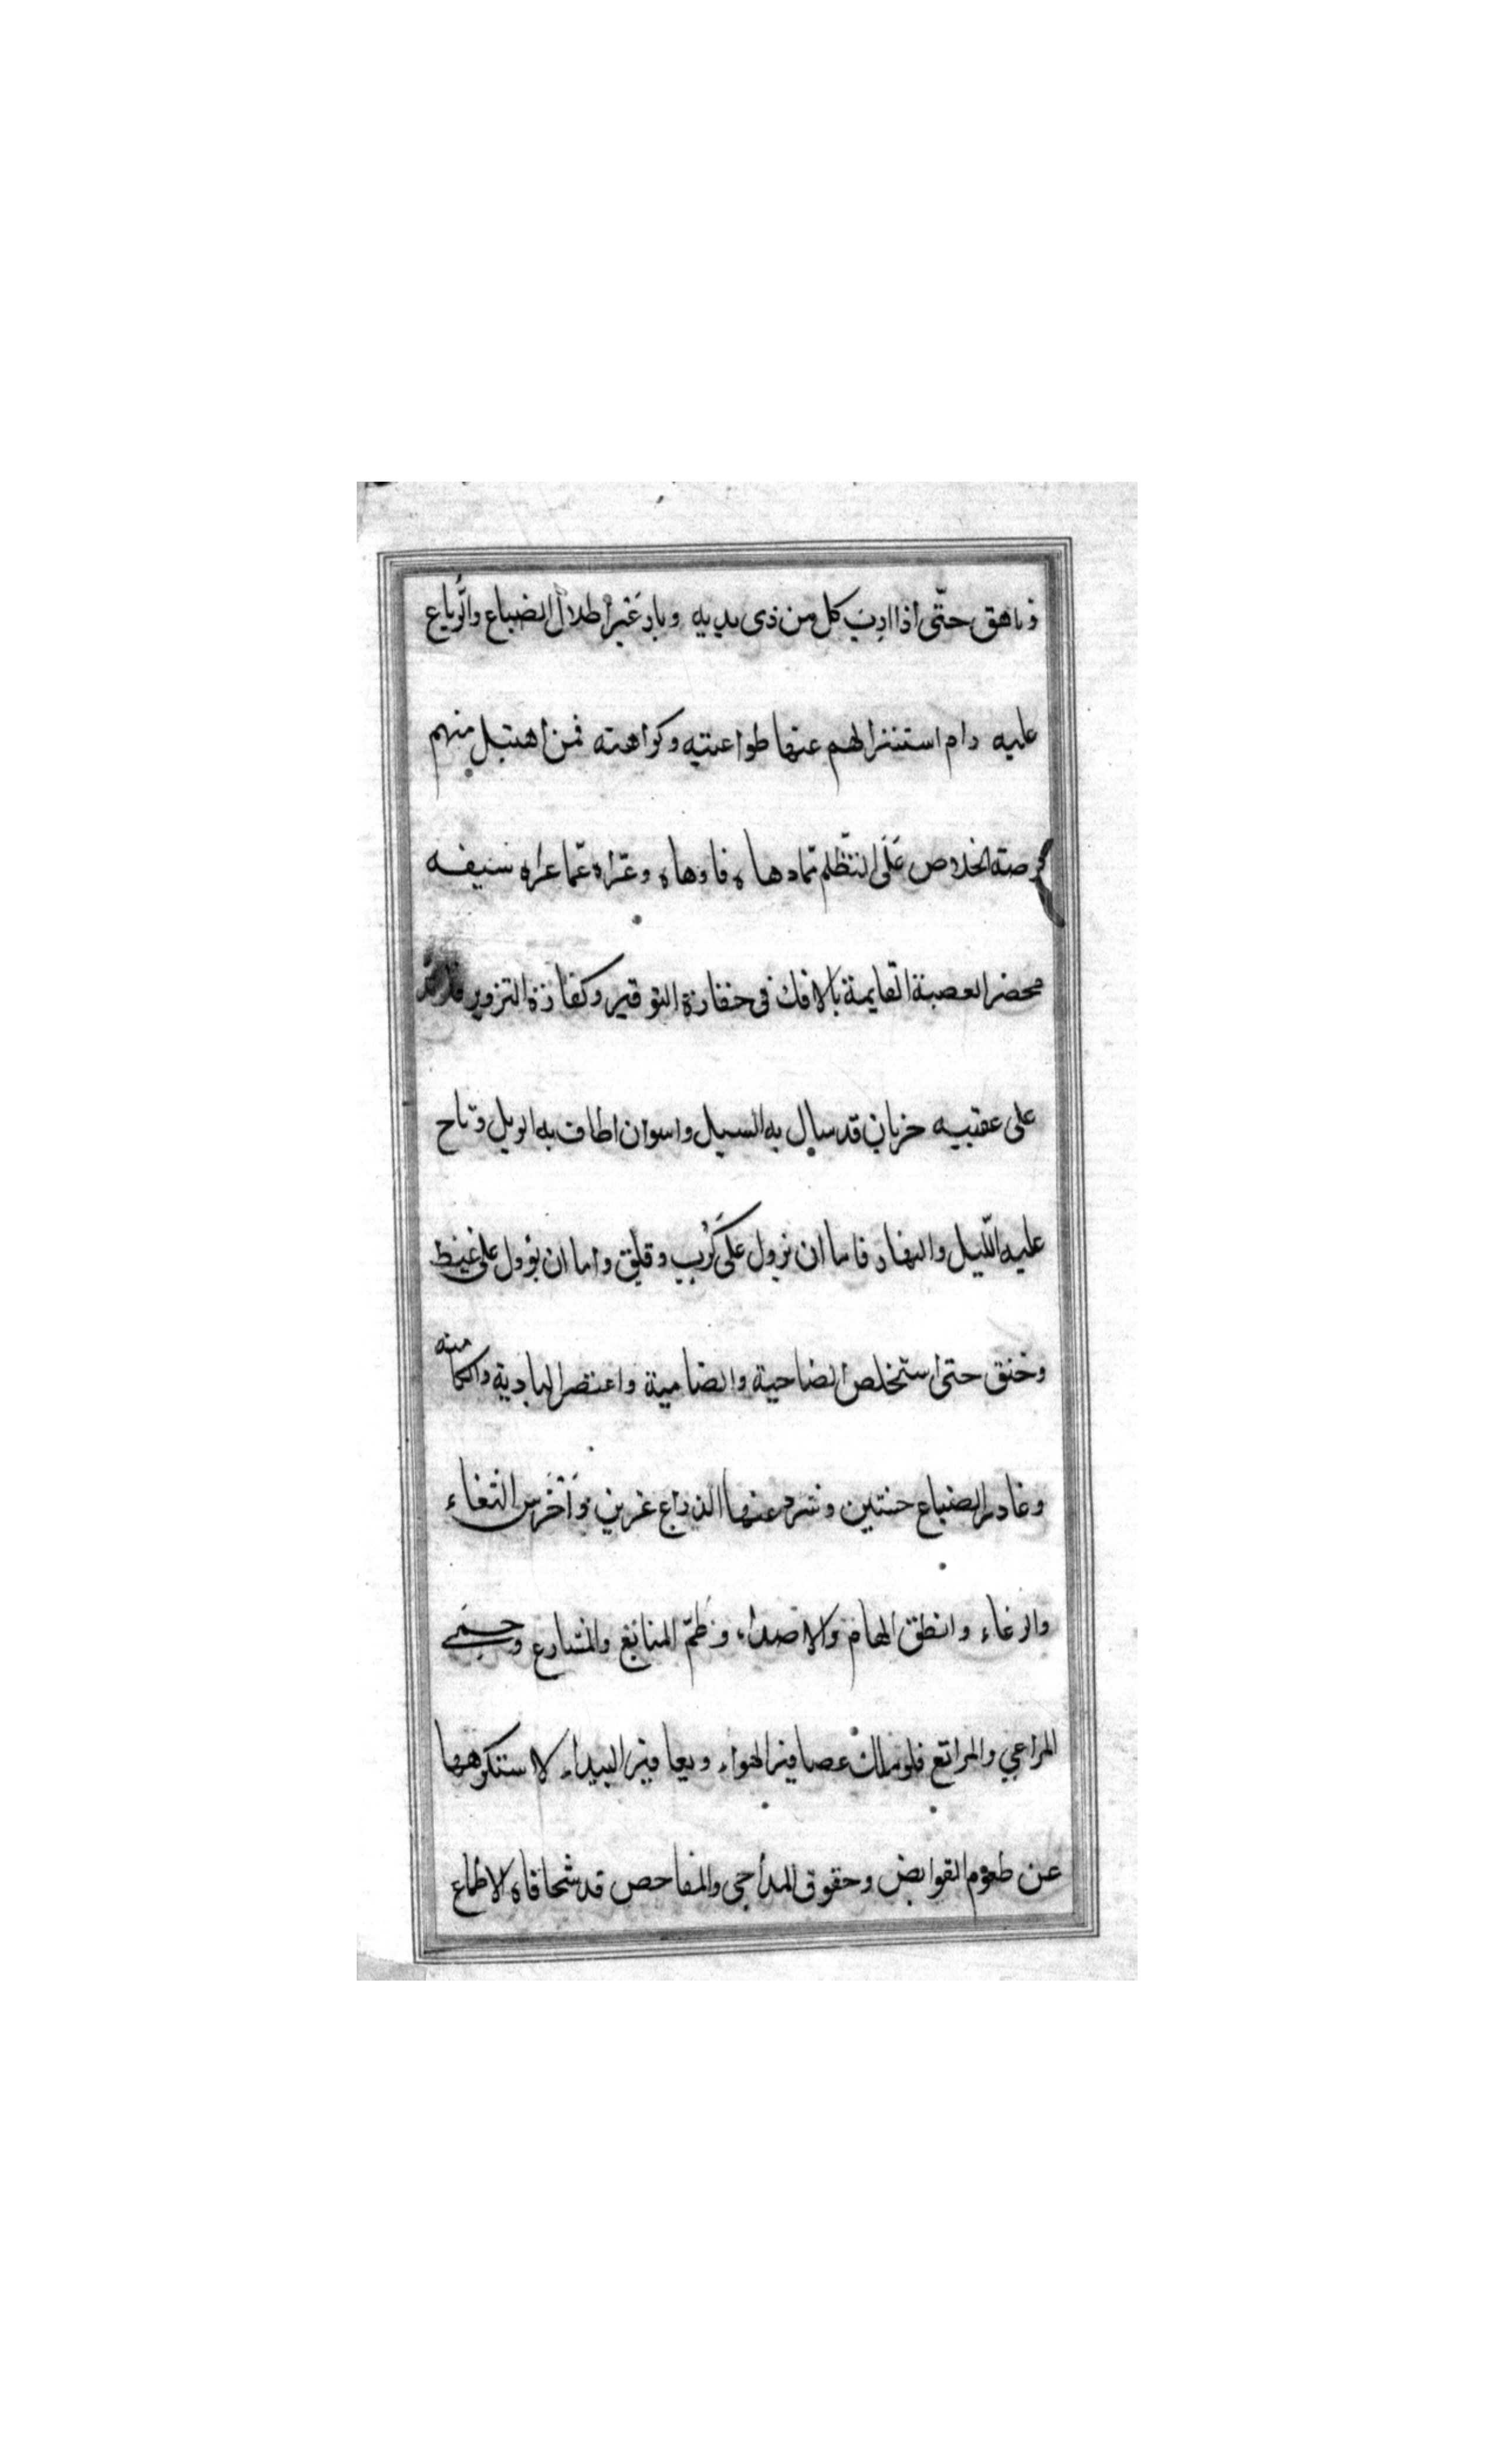 وناهق حتّى اذا ادب كل من ذى يديه وباد غير اطلال الضياع والرباع
عليه رام استنزالهم عنها طواعيته وكراهته فمن اهتبل منهم
فرصة الخلاص على التظلم تمادهاه فاوهاه وعراه عمّا عراه سيفه
محضر العصبة القايمة بالافك فى خفارة التوقير وكفارة التزوير فارتد
على عقبيه خزيان قد سال به السيل واسوان اطاف به الويل وناح
عليه اللّيل والنهار فاما ان نزول على كرب وقلق واما ان يؤول على غيظ
وخنق حتى استخلص الضاحية والضامنة واعتصر البادية والكامنه
وغادر الضياع حنتين وشرد عنها الذراع غرين واخرس الثغاء
والرغاء وانطق الهام والاصداء وطمّ المنابع والمشارع وحمى
المراعي والمراتع فلو ملك عصافير الهواء ويعافير البيداء لاستكرهها
عن طعوم القوابض وحقوق المداحى والمفاحص قد شحا فاه لاطماع